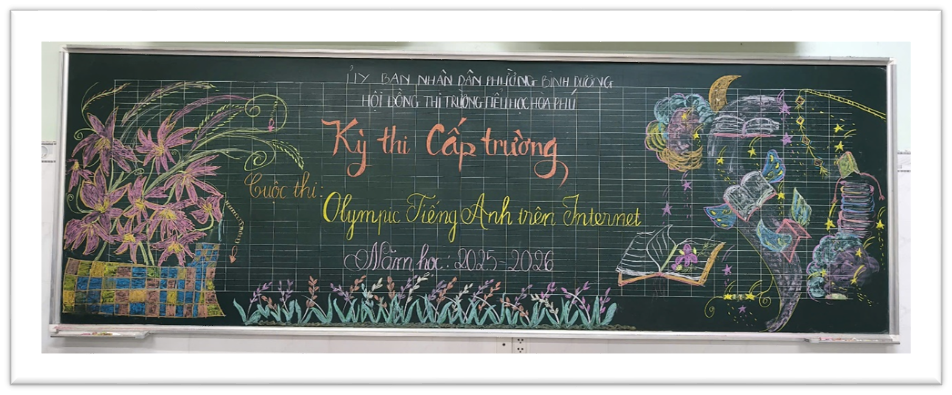 ỦY BAN NHÂN DÂN PHƯỜNG BÌNH DƯƠNG
HỘI ĐỒNG THI TRƯỜNG TIỂU HỌC HOÀ PHÚ
Kỳ thi Cấp trường
Cuộc thi:
Olympic Tiếng Anh trên Internet
Năm học: 2025-2026